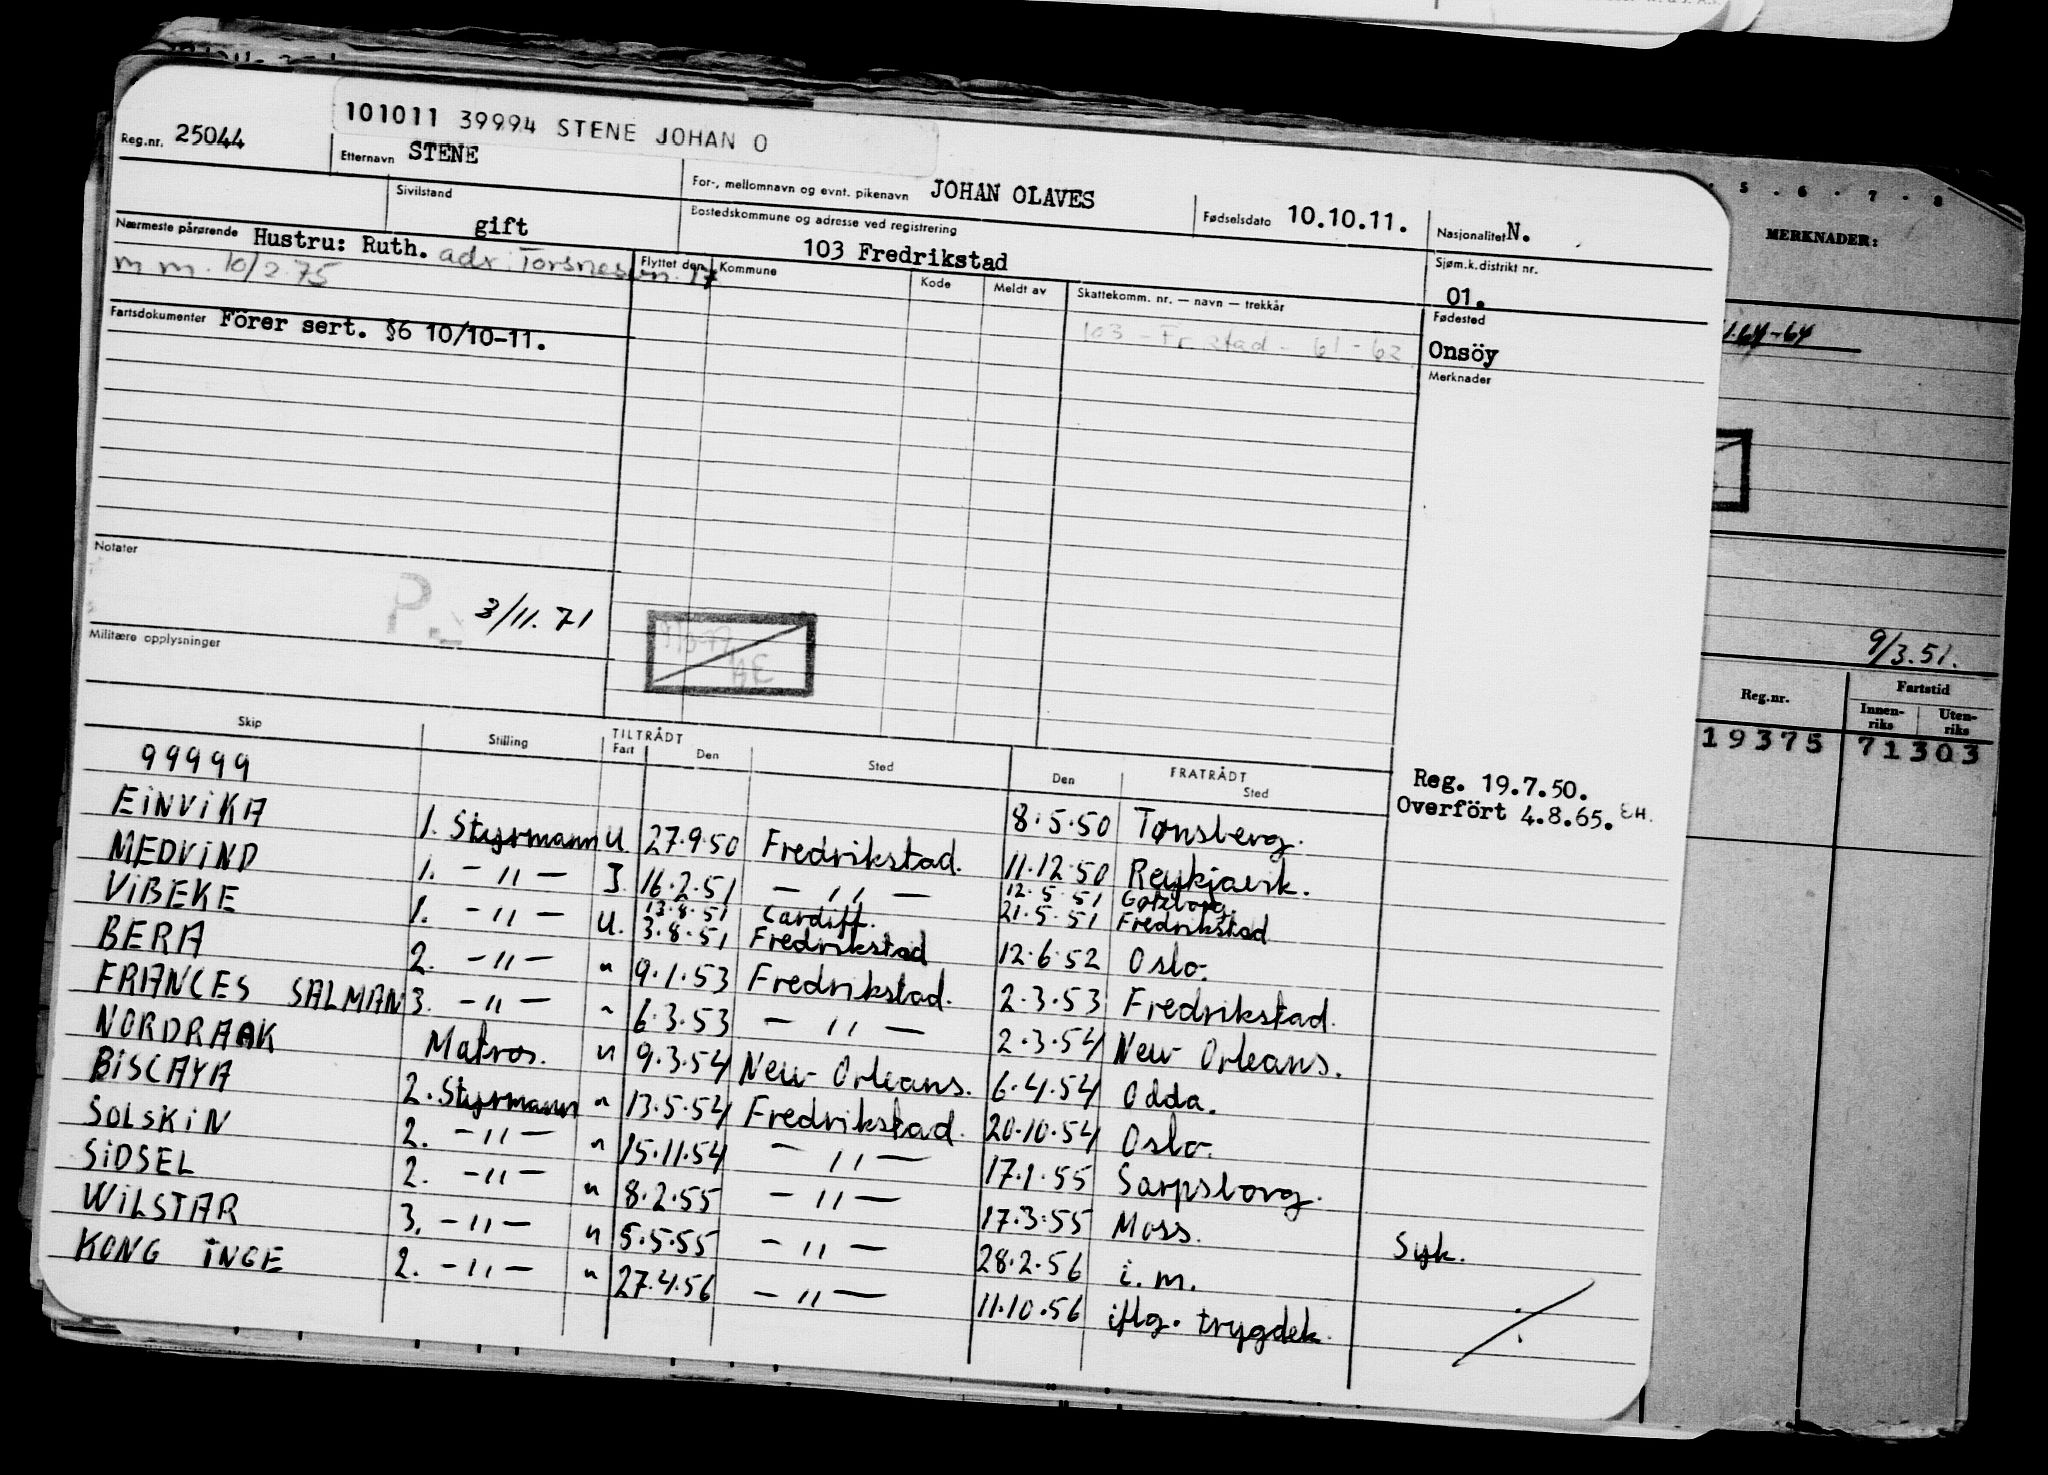 101011 39994 STENE JOHAN O
Reg.nr. 25044
Etternavn STENE
For-, mellomnavn og evnt. pikenavn JOHAN OLAVES
Fødselsdato 10.10.11.
Nasjonalitet N.
Sivilstand
gift
Bostedskommune og adresse ved registrering
103 Fredrikstad
Sjøm.k.distrikt nr.
01.
Nærmeste pårørende Hustru: Ruth. adr. Torsnesvn. 17
m m. 10/2 75
Flyttet den Kommune Kode Meldt av Skattekomm. nr. — navn — trekkår
103 - Fr.stad - 61 - 62
Fødested
Onsöy
Fartsdokumenter Förer sert. §6 10/10-11.
Merknader
Notater
P. 3/11.71
Militære opplysninger
Skip Stilling TILTRÅDT Fart Den Sted FRATRÅDT Den Sted
Reg. 19.7.50.
Overfört 4.8.65. EH.
99999 8.5.50 Tønsberg.
EINVIKA 1. Styrmann U. 27.9.50 Fredrikstad. 11.12.50 Reykjavik.
MEDVIND 1. -"- I. 16.2.51 -"- 12.5.51 Gøteborg. 21.5.51 Fredrikstad
VIBEKE 1. -"- U. 13.8.51 Cardiff. 3.8.51 Fredrikstad 12.6.52 Oslo.
BERA 2. -"- " 9.1.53 Fredrikstad. 2.3.53 Fredrikstad.
FRANCES SALMAN 3. -"- " 6.3.53 -"- 2.3.54 New Orleans.
NORDRAAK Matros. " 9.3.54 New Orleans. 6.4.54 Odda.
BISCAYA 2. Styrmann " 13.5.54 Fredrikstad. 20.10.54 Oslo.
SOLSKIN 2. -"- " 15.11.54 -"- 17.1.55 Sarpsborg.
SIDSEL 2. -"- " 8.2.55 -"- 17.3.55 Moss.
WILSTAR 3. -"- " 5.5.55 -"- 28.2.56 i. m. Syk.
KONG INGE 2. -"- " 27.4.56 -"- 11.10.56 iflg. trygdek.
5 . 6 . 7 . 8
MERKNADER:
9/3.51.
Reg.nr. Fartstid
Innen-riks Uten-riks
19375 71303